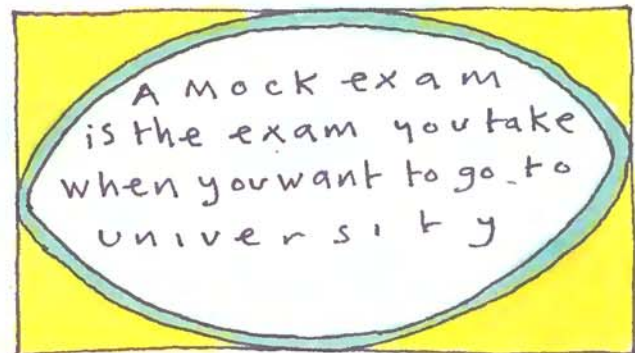 A Mock exam
is the exam you take
when you want to go to
university